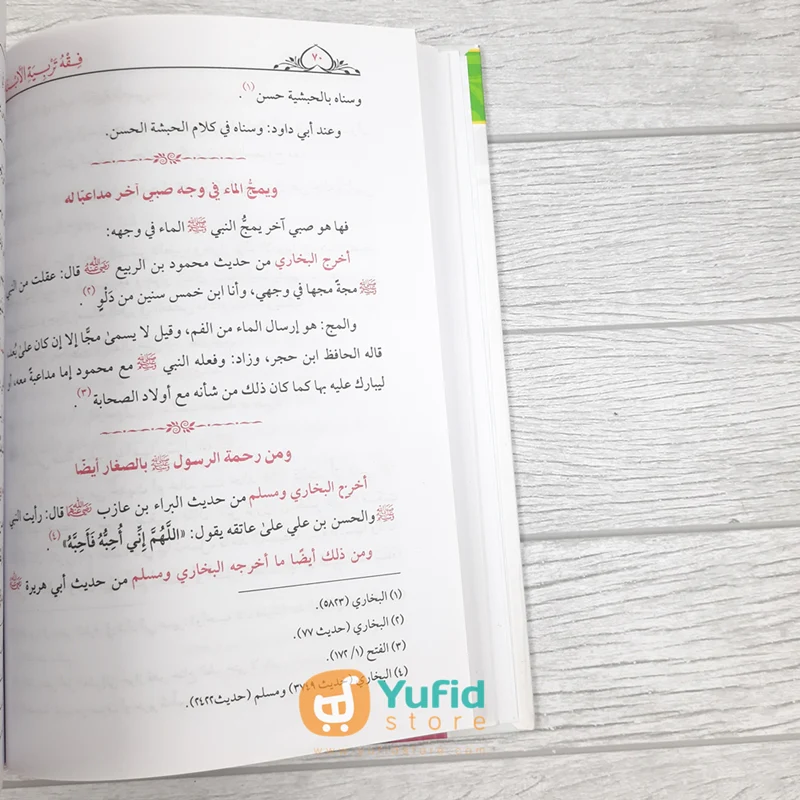 ٧٠
فِقْهُ تَرْبِيَةِ
وسناه بالحبشية حسن (١).
وعند أبي داود: وسناه في كلام الحبشة الحسن.
ويمجُّ الماء في وجه صبي آخر مداعبًا له
فها هو صبي آخر يمجُّ النبي ﷺ الماء في وجهه:
أخرج البخاري من حديث محمود بن الربيع رضي الله عنه قال: عقلت من النبي
ﷺ مجةً مجها في وجهي، وأنا ابن خمس سنين من دَلْوٍ (٢).
والمج: هو إرسال الماء من الفم، وقيل لا يسمىٰ مجًّا إلا إن كان علىٰ
قاله الحافظ ابن حجر، وزاد: وفعله النبي ﷺ مع محمود إما مداعبةً معه،
ليبارك عليه بها كما كان ذلك من شأنه مع أولاد الصحابة (٣).
ومن رحمة الرسول ﷺ بالصغار أيضًا
أخرج البخاري ومسلم من حديث البراء بن عازب رضي الله عنهما قال: رأيت النبي
ﷺ والحسن بن علي علىٰ عاتقه يقول: «اللَّهُمَّ إِنِّي أُحِبُّهُ فَأَحِبَّهُ» (٤).
ومن ذلك أيضًا ما أخرجه البخاري ومسلم من حديث أبي هريرة
(١) البخاري (٥٨٢٣).
(٢) البخاري (حديث ٧٧).
(٣) الفتح (١/ ١٧٢).
(٤) البخاري (حديث ٣٧٤٩) ومسلم (حديث ٢٤٢٢).
Yufid
store